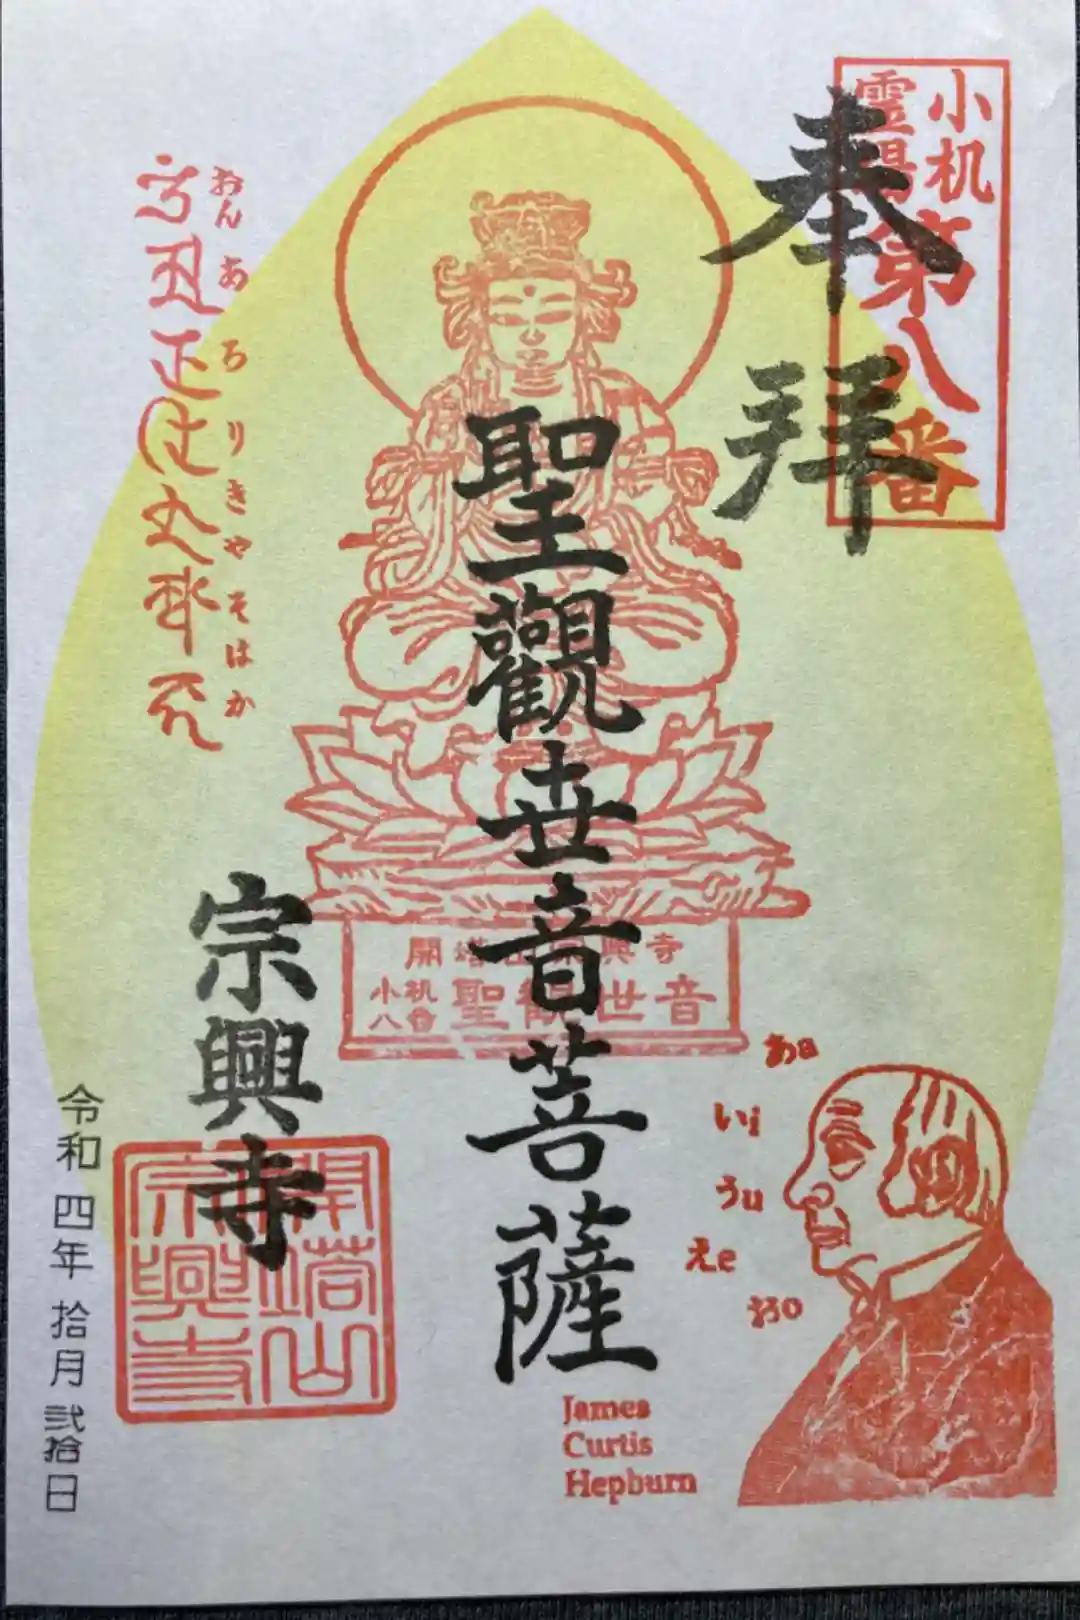 小机
霊場
第八番
奉拝
聖觀世音菩薩
おんあろりきやそはか
開塔山宗興寺
小机
八番
聖観世音
宗興寺
開塔山
宗興寺
令和四年拾月弐拾日
あa
いi
うu
えe
おo
James
Curtis
Hepburn